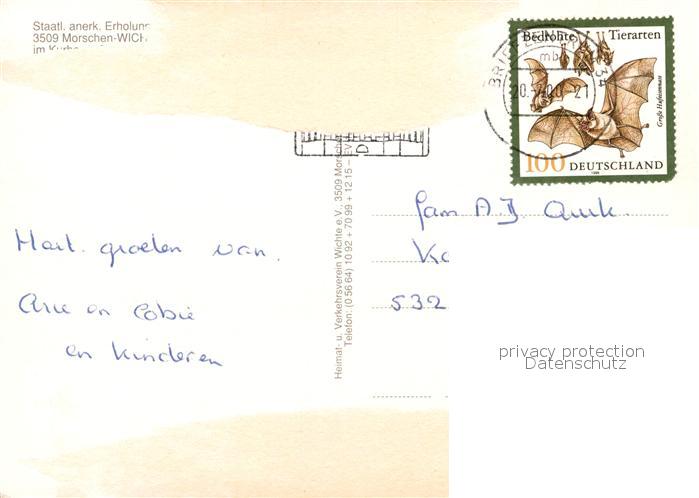 Staatl. anerk. Erholung
3509 Morschen-WICH
im
Bedrohte Tierarten
Große Hufeisennase
100 DEUTSCHLAND
1999
BRIEFZENTRUM 34
mb
-21
Heimat- u. Verkehrsverein Wichte e.V., 3509 Morsche
Telefon: (0 56 64) 10 92 + 70 99 + 12 15 – EV
Hart. groeten van.
Arie en Cobie
en kinderen
fam A.J.
532
privacy protection
Datenschutz